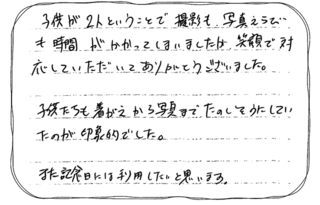 子供が2人ということで撮影も、写真えらび
も時間がかかってしまいましたが笑顔で対
応していただいてありがとうございました。
子供たちも着がえから写真までたのしそうにしてい
たのが印象的でした。
また記念日には利用したいと思います。